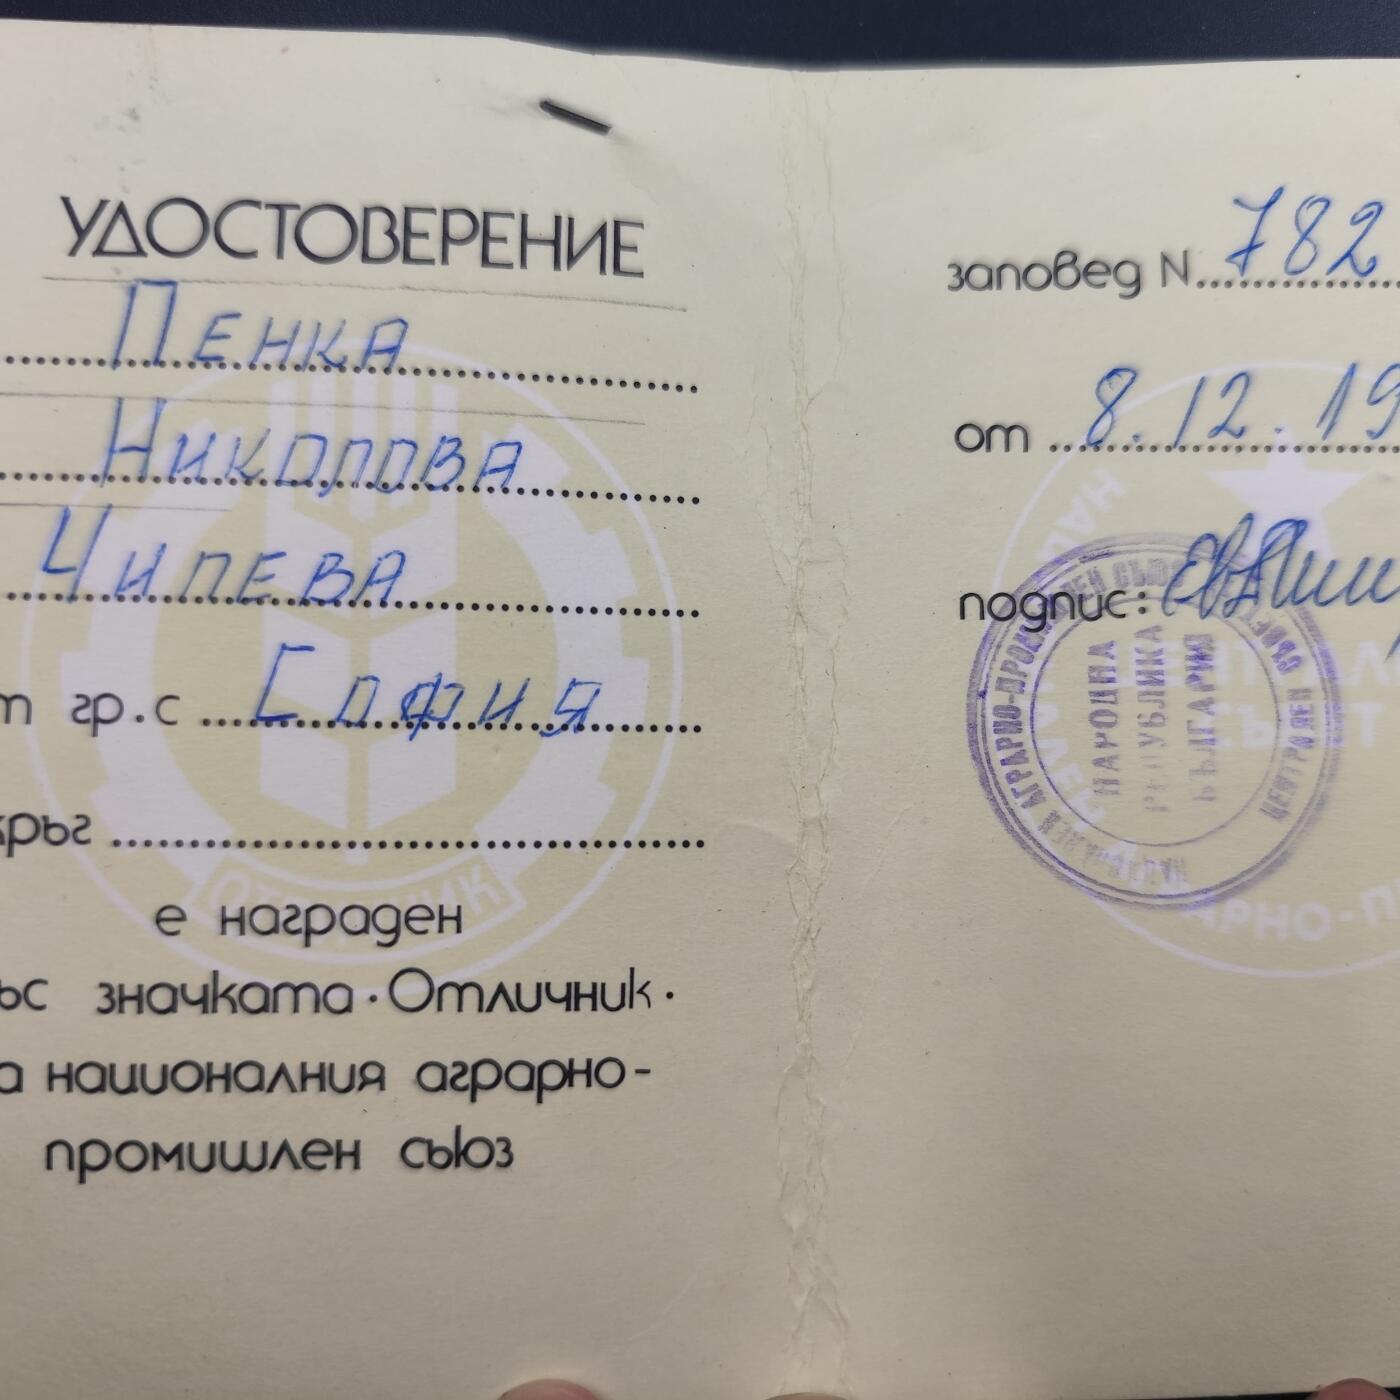 УДОСТОВЕРЕНИЕ
ПЕНКА
НИКОЛОВА
ЧИПЕВА
гр.с СОФИЯ
е награден
значката · Отличник ·
националния аграрно-
промишлен съюз
заповед N 782
от 8.12.19
подпис:
АГРАРНО-ПРОМИШЛЕН СЪЮЗ
ЦЕНТРАЛЕН СЪВЕТ
НАРОДНА
РЕПУБЛИКА
БЪЛГАРИЯ